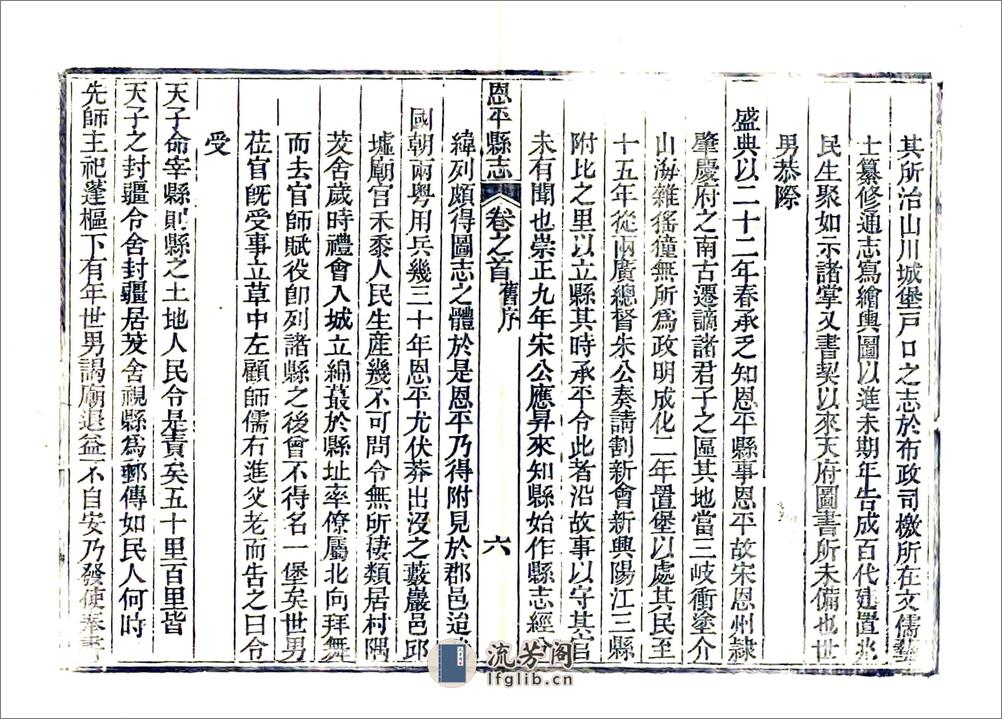 其所治山川城堡戸口之志於布政司檄所在文儒藝
士纂修通志寫繪輿圖以進未期年告成百代建置兆
民生聚如示諸掌又書契以來天府圖書所未備也世
男恭際
盛典以二十二年春承乏知恩平縣事恩平故宋恩州隷
肇慶府之南古遷謫諸君子之區其地當三岐衝塗介
山海雜猺獞無所爲政明成化二年置堡以處其民至
十五年從兩廣總督朱公奏請割新會新興陽江三縣
附比之里以立縣其時承平令此者沿故事以守其官
未有聞也崇正九年宋公應昇來知縣始作縣志經分
恩平縣志
卷之首
舊序
六
緯列頗得圖志之體於是恩平乃得附見於郡邑迨
國朝兩粤用兵幾三十年恩平尤伏莽出沒之藪巖邑邱
墟廟官禾黍人民生産幾不可問令無所棲類居村隅
茇舍歲時禮會入城立綿蕞於縣址率僚屬北向拜舞
而去官師賦役即列諸縣之後曾不得名一堡矣世男
莅官旣受事立草中左顧師儒右進父老而告之曰令
受
天子命宰縣則縣之土地人民令是責矣五十里百里皆
天子之封疆令舍封疆居茇舍視縣爲郵傳如民人何時
先師主祀蓬樞下有年世男謁廟退益不自安乃發使奉書
流芳阁
lfglib.cn